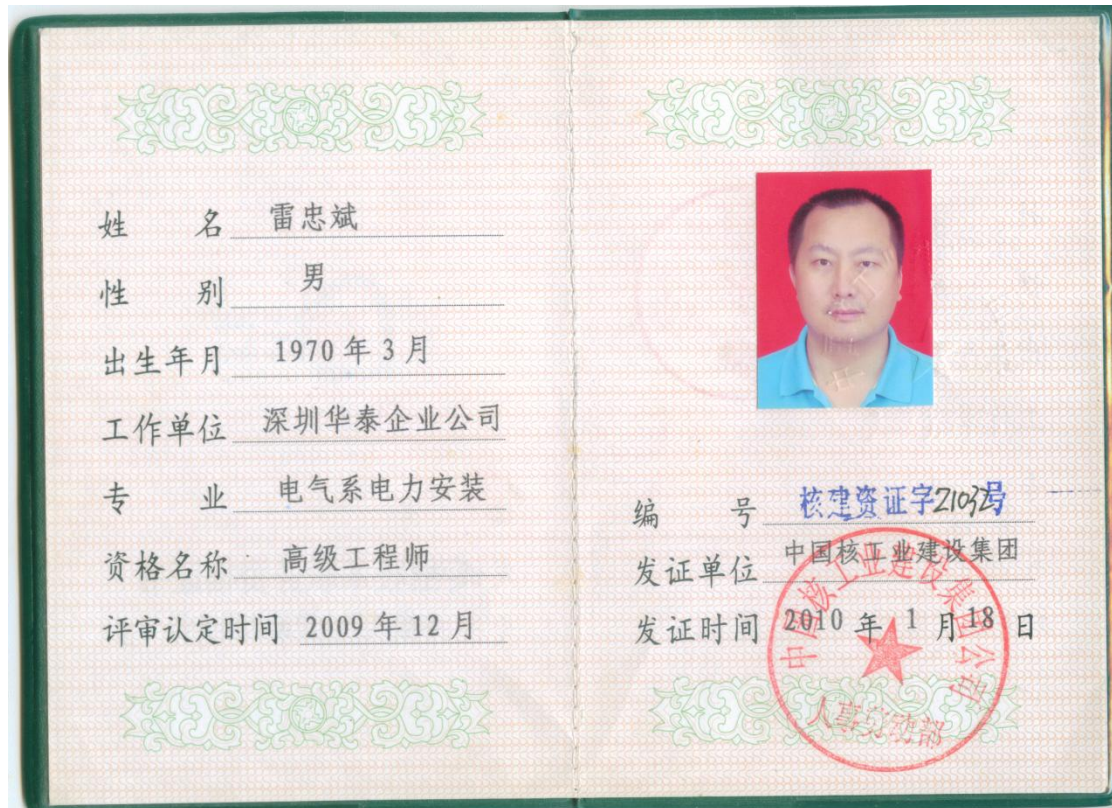 姓名 雷忠斌
性别 男
出生年月 1970年3月
工作单位 深圳华泰企业公司
专业 电气系电力安装
资格名称 高级工程师
评审认定时间 2009年12月
编号 核建资证字21032号
发证单位 中国核工业建设集团
发证时间 2010年1月18日
中国核工业建设集团公司
人事劳动部